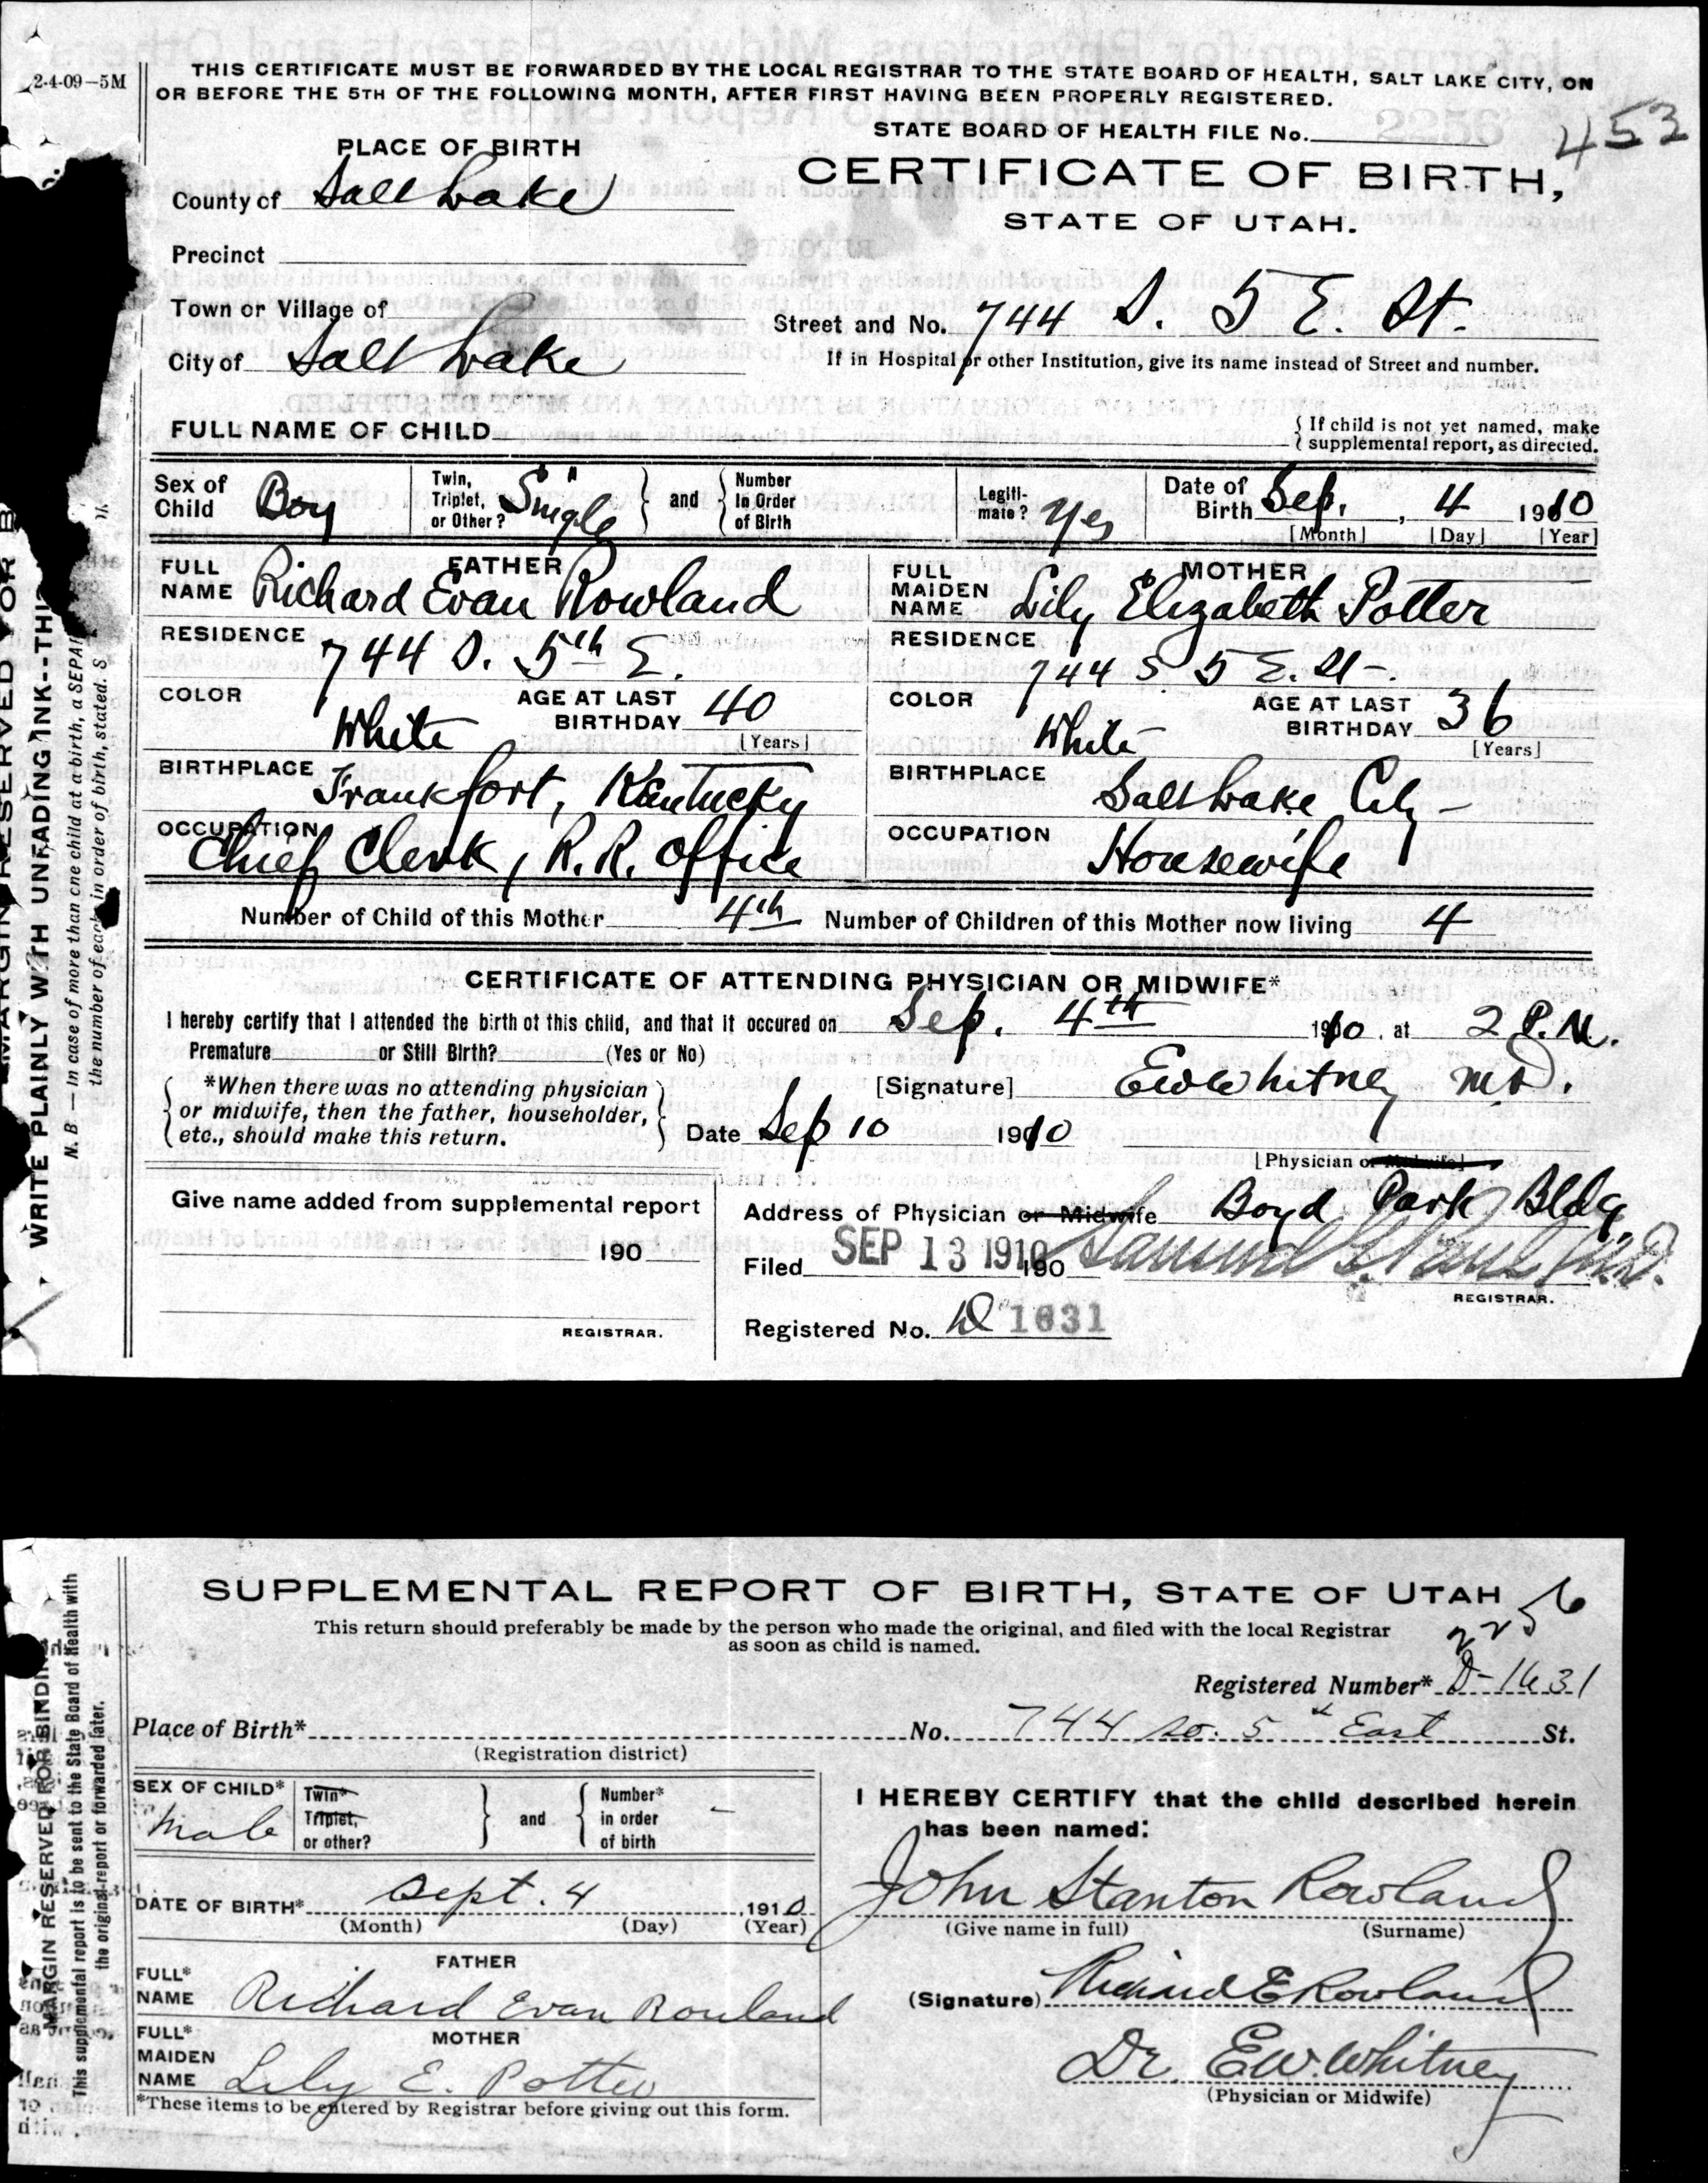 2-4-09-5M
THIS CERTIFICATE MUST BE FORWARDED BY THE LOCAL REGISTRAR TO THE STATE BOARD OF HEALTH, SALT LAKE CITY, ON
OR BEFORE THE 5TH OF THE FOLLOWING MONTH, AFTER FIRST HAVING BEEN PROPERLY REGISTERED.
STATE BOARD OF HEALTH FILE No. 453
PLACE OF BIRTH
CERTIFICATE OF BIRTH,
STATE OF UTAH.
County of Salt Lake
Precinct
Town or Village of
Street and No. 744 S. 5 E. St.
City of Salt Lake
If in Hospital or other Institution, give its name instead of Street and number.
FULL NAME OF CHILD
{ If child is not yet named, make
supplemental report, as directed.
Sex of Child Boy
Twin, Triplet, or Other? Single
and
Number In Order of Birth
Legiti-mate? Yes
Date of Birth Sep. , 4 1910
[Month] [Day] [Year]
FATHER
FULL NAME Richard Evan Rowland
MOTHER
FULL MAIDEN NAME Lily Elizabeth Potter
RESIDENCE 744 S. 5th E.
RESIDENCE 744 S 5 E. St-
COLOR White
AGE AT LAST BIRTHDAY 40
[Years]
COLOR White
AGE AT LAST BIRTHDAY 36
[Years]
BIRTHPLACE Frankfort, Kentucky
BIRTHPLACE Salt Lake City -
OCCUPATION Chief Clerk, R.R. Office
OCCUPATION Housewife
Number of Child of this Mother 4th Number of Children of this Mother now living 4
CERTIFICATE OF ATTENDING PHYSICIAN OR MIDWIFE*
I hereby certify that I attended the birth of this child, and that it occured on Sep. 4th 1910. at 2 P.M.
Premature or Still Birth? (Yes or No)
*When there was no attending physician
or midwife, then the father, householder,
etc., should make this return.
[Signature] E W Whitney M.D.
Date Sep 10 1910
[Physician or Midwife]
Give name added from supplemental report
190
REGISTRAR.
Address of Physician or Midwife Boyd Park Bldg.
Filed SEP 13 1910 190
REGISTRAR.
Registered No. D 1631
WRITE PLAINLY WITH UNFADING INK--THIS
N. B. — In case of more than one child at a birth, a SEPAR
the number of each, in order of birth, stated.
SUPPLEMENTAL REPORT OF BIRTH, STATE OF UTAH
2256
This return should preferably be made by the person who made the original, and filed with the local Registrar
as soon as child is named.
Registered Number* D-1631
Place of Birth* No. 744 So. 5th East St.
(Registration district)
SEX OF CHILD* Male
Twin* Triplet, or other?
and
Number* in order of birth -
I HEREBY CERTIFY that the child described herein
has been named:
John Stanton Rowland
(Give name in full) (Surname)
DATE OF BIRTH* Sept. 4 ,1910
(Month) (Day) (Year)
FATHER
FULL* NAME Richard Evan Rowland
(Signature) Richard E Rowland
MOTHER
FULL* MAIDEN NAME Lily E. Potter
Dr. E.W. Whitney
(Physician or Midwife)
*These items to be entered by Registrar before giving out this form.
MARGIN RESERVED FOR BINDING
This supplemental report is to be sent to the State Board of Health with
the original report or forwarded later.